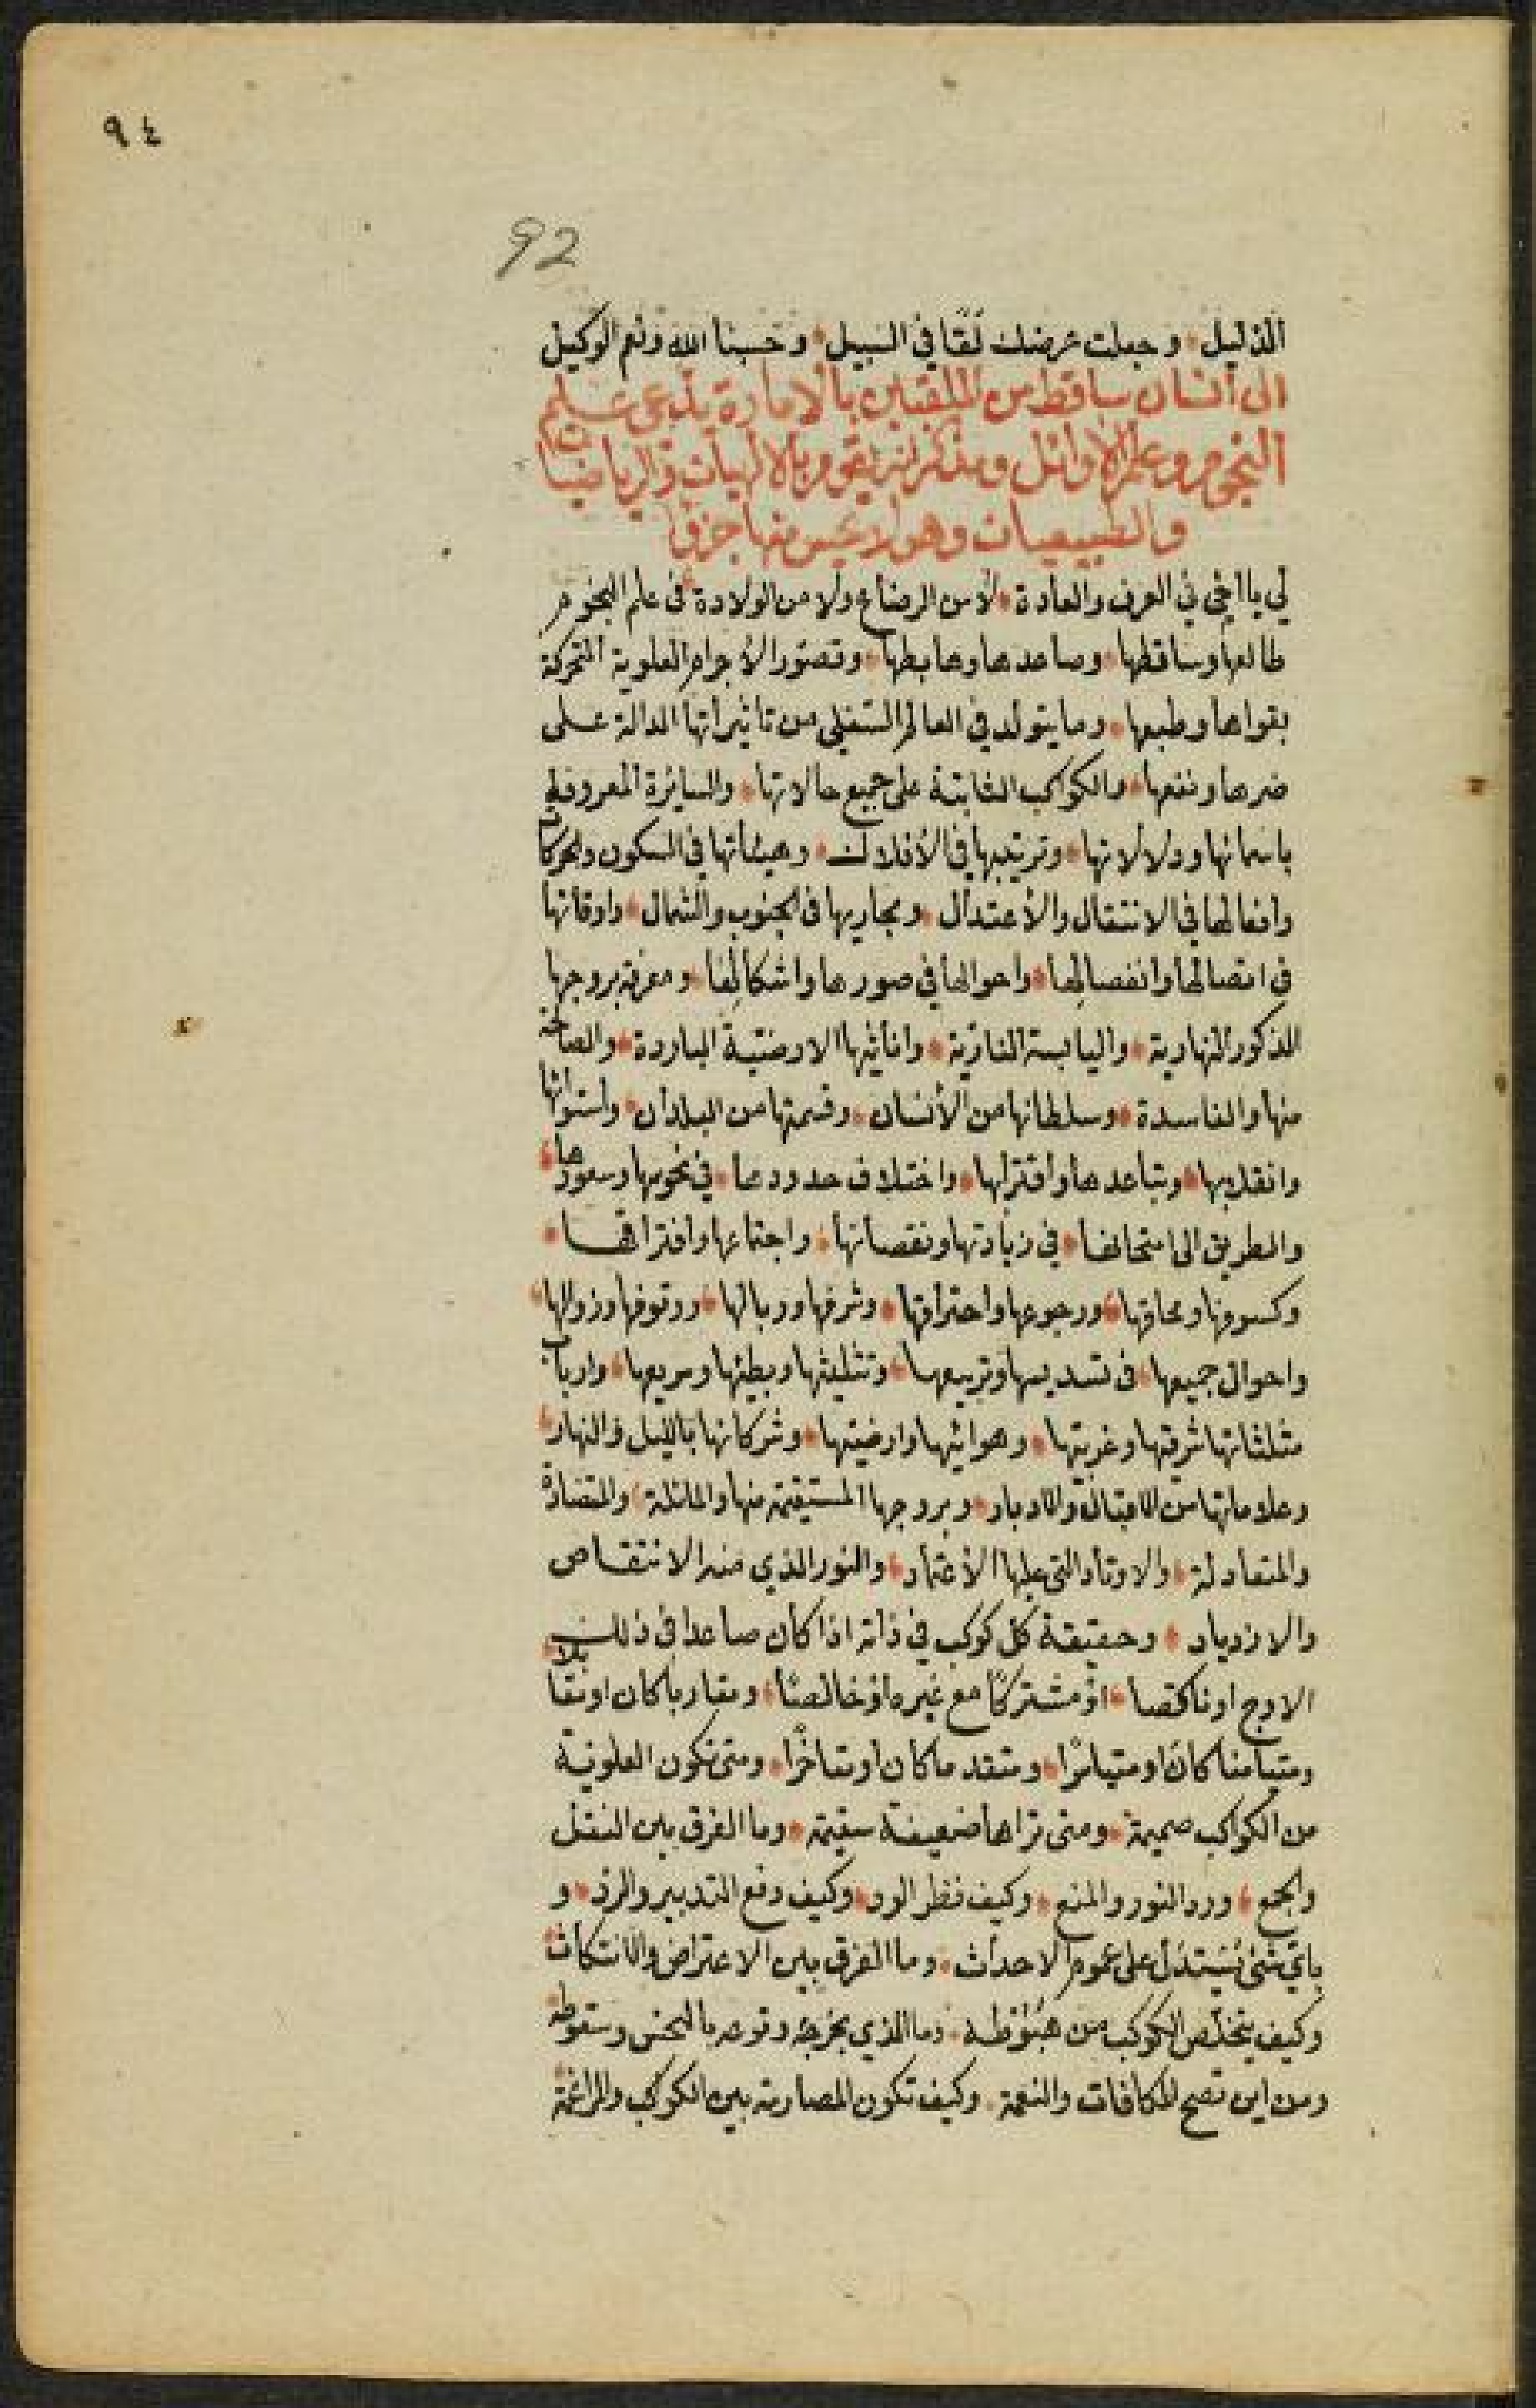 ٩٤
92
الذليل * وجعلت عرضك لقا في السبيل * وحسبنا الله ونعم الوكيل
الى انسان ساقط من الملقبين بالامارة يدعى علم
النجوم وعلم الاوائل ويذكر انه يقوم بالالهيات والرياضيات
والطبيعيات وهو لا يحسن منها حرفا
لي يا اخي في العرف والعادة * لا من الرضاع ولا من الولادة * في علم النجوم
طالعها وساقطها * وصاعدها وهابطها * وتصور الأجرام العلوية المتحركة
بقواها وطبعها * وما يتولد في العالم السفلى من تاثيراتها الدالة على
ضرها ونفعها * والكواكب الثابتة على جميع حالاتها * والسائرة المعروفة
باسمائها ودلالاتها * وترتيبها في الأفلاك * وهيئاتها في السكون والحركات
وافعالها في الانتقال والأعتدال * ومجاريها في الجنوب والشمال * واوقاتها
في اتصالها وانفصالها * واحوالها في صورها واشكالها * ومعرفة بروجها
الذكور النهارية * واليابسة النارية * واناثيها الارضية الباردة * والصالحة
منها والفاسدة * وسلطانها من الأنسان * وقسمتها من البلدان * واستوائها
وانقلابها * وتباعدها واقترابها * واختلاف حدودها * في نحوسها وسعودها *
والطريق الى امتحانها * في زيادتها ونقصانها * واجتماعها وافتراقها *
وكسوفها ومحاقها * ورجوعها واحتراقها * وشرفها ووبالها * ووقوفها وزوالها *
واحوال جميعها * في تسديسها وتربيعها * وتثليثها وبطيئها وسريعها * وارباب
مثلثاتها شرقيتها وغربيتها * وهوائيتها وارضيتها * وشركائها بالليل والنهار *
وعلاماتها من الاقبال والادبار * وبروجها المستقيمة منها والمائلة * والمتضادة
والمتعادلة * والاوتاد التي عليها الأعتماد * والنور الذي منه الانتقاص
والازدياد * وحقيقة كل كوكب في ذاته اذا كان صاعدا في ذلك
الاوج او ناكصا * او مشتركًا مع غيره او خالصًا * ومقاربا كان او مقابلا *
ومتيامنا كان او متياسرًا * ومتقدما كان او متاخرًا * ومتى تكون العلوية
من الكواكب صحيحة * ومتى تراها ضعيفة سقيمة * وما الفرق بين النقل
والجمع * ورد النور والمنع * وكيف نظر الود * وكيف دفع التدبير والرد * و
باي شئ يستدل على عموم الاحداث * وما الفرق بين الاعتراض والانتكاث *
وكيف يتخلص الكوكب من هبوطه * وما الذي يخرجه وقوعه بالنحس وسقوطه *
ومن اين تصح المكافات والنعمة * وكيف تكون المصارمة بين الكوكب والمراغمة